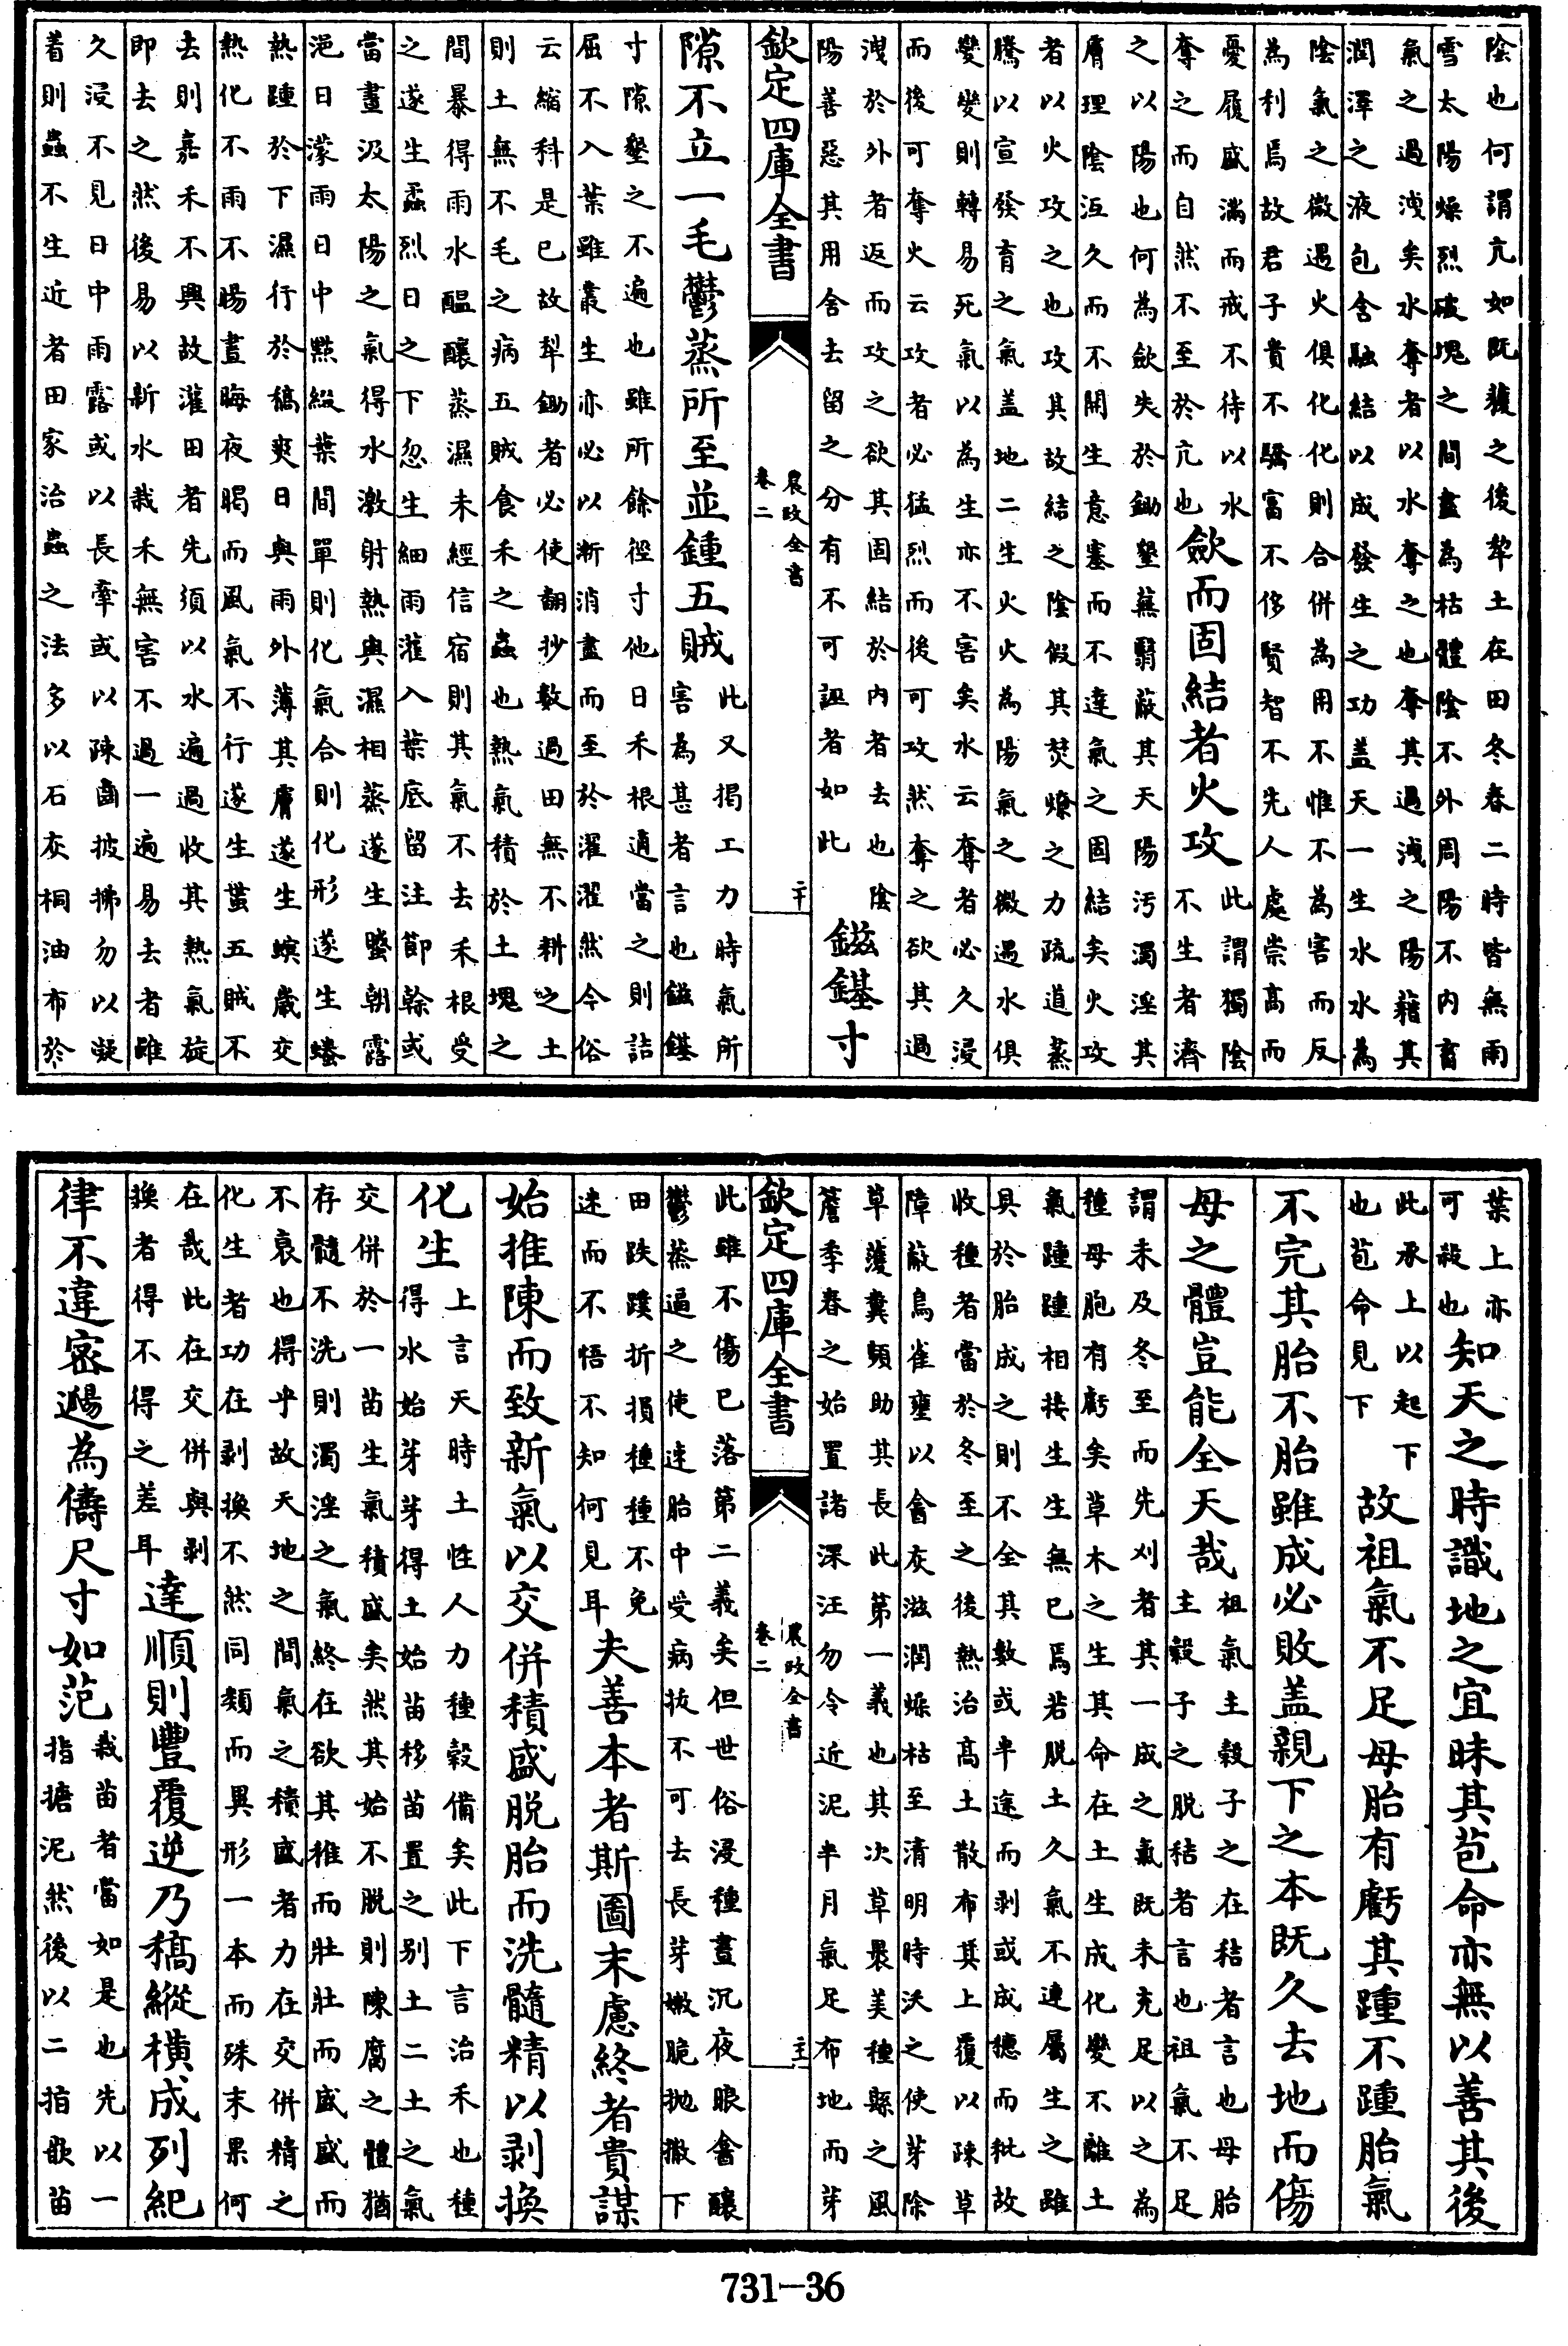 陰也何謂亢如既穫之後犂土在田冬春二時皆無雨
雪太陽燥烈破塊之間盡為枯體陰不外周陽不内畜
氣之過洩矣水奪者以水奪之也奪其過洩之陽藉其
潤澤之液包含融結以成發生之功盖天一生水水為
陰氣之微遇火俱化化則合併為用不惟不為害而反
為利焉故君子貴不驕富不侈賢智不先人處崇高而
憂履盛滿而戒不待以水
奪之而自然不至於亢也
歛而固結者火攻
此謂獨陰
不生者濟
之以陽也何為歛失於鋤墾蕪翳蔽其天陽污濁淫其
膚理陰沍久而不開生意塞而不達氣之固結矣火攻
者以火攻之也攻其故結之陰假其焚燎之力疏道蒸
騰以宣發育之氣盖地二生火火為陽氣之微遇水俱
變變則轉易死氣以為生亦不害矣水云奪者必久浸
而後可奪火云攻者必猛烈而後可攻然奪之欲其過
洩於外者返而攻之欲其固結於内者去也陰
陽善惡其用舍去留之分有不可誣者如此
鎡錤寸
欽定四庫全書
農政全書
卷二
二十
隙不立一毛鬱蒸所至並鍾五賊
此又揭工力時氣所
害為甚者言也鎡錤
寸隙墾之不遍也雖所餘徑寸他日禾根適當之則詰
屈不入葉雖叢生亦必以漸消盡而至於濯濯然今俗
云縮科是已故犁鋤者必使翻抄數過田無不耕之土
則土無不毛之病五賊食禾之蟲也熱氣積於土塊之
間暴得雨水醖釀蒸濕未經信宿則其氣不去禾根受
之遂生蟊烈日之下忽生細雨灌入葉底留注節幹或
當晝汲太陽之氣得水激射熱與濕相蒸遂生朝露
浥日濛雨日中點綴葉間單則化氣合則化形遂生
熱踵於下濕行於稿爽日與雨外薄其膚遂生螟歲交
熱化不雨不暘晝晦夜暍而風氣不行遂生五賊不
去則嘉禾不興故灌田者先須以水遍過收其熱氣旋
即去之然後易以新水栽禾無害不過一遍易去者雖
久浸不見日中雨露或以長牽或以踈齒披拂勿以凝
着則蟲不生近者田家治蟲之法多以石灰桐油布於
葉上亦
可殺也
知天之時識地之宜昧其苞命亦無以善其後
此承上以起下
也苞命見下
故祖氣不足母胎有虧其踵不踵胎氣
不完其胎不胎雖成必敗盖親下之本既久去地而傷
母之體豈能全天哉
祖氣主榖子之在秸者言也母胎
主榖子之脱秸者言也祖氣不足
謂未及冬至而先刈者其一成之氣既未充足以之為
種母胞有虧矣草木之生其命在土生成化變不離土
氣踵踵相接生生無已焉若脱土久氣不連屬生之雖
具於胎成之則不全其數或半途而剥或成穗而秕故
收種者當於冬至之後熱治髙土散布其上覆以踈草
障蔽鳥雀壅以禽灰滋潤燥枯至清明時沃之使芽除
草糞頻助其長此第一義也其次草褁美種縣之風
簷季春之始置諸深汪勿令近泥半月氣足布地而芽
欽定四庫全書
農政全書
卷二
主
此雖不傷已落第二義矣但世俗浸種晝沉夜眼禽釀
鬱蒸逼之使速胎中受病拔不可去長芽嫩脆抛撒下
田跌蹼折損種種不免
速而不悟不知何見耳
夫善本者斯圖末慮終者貴謀
始推陳而致新氣以交併積盛脱胎而洗髓精以剥換
化生
上言天時土性人力種榖備矣此下言治禾也種
得水始芽芽得土始苗移苗置之别土二土之氣
交併於一苗生氣積盛矣然其始不脱則陳腐之體猶
存髓不洗則濁淫之氣終在欲其稚而壯壯而盛盛而
不衰也得乎故天地之間氣之積盛者力在交併精之
化生者功在剥換不然同類而異形一本而殊末果何
在哉此在交併與剥
換者得不得之差耳
達順則豐覆逆乃稿縱横成列紀
律不違密邇為儔尺寸如范
栽苗者當如是也先以一
指搪泥然後以二指嵌苗
731—36